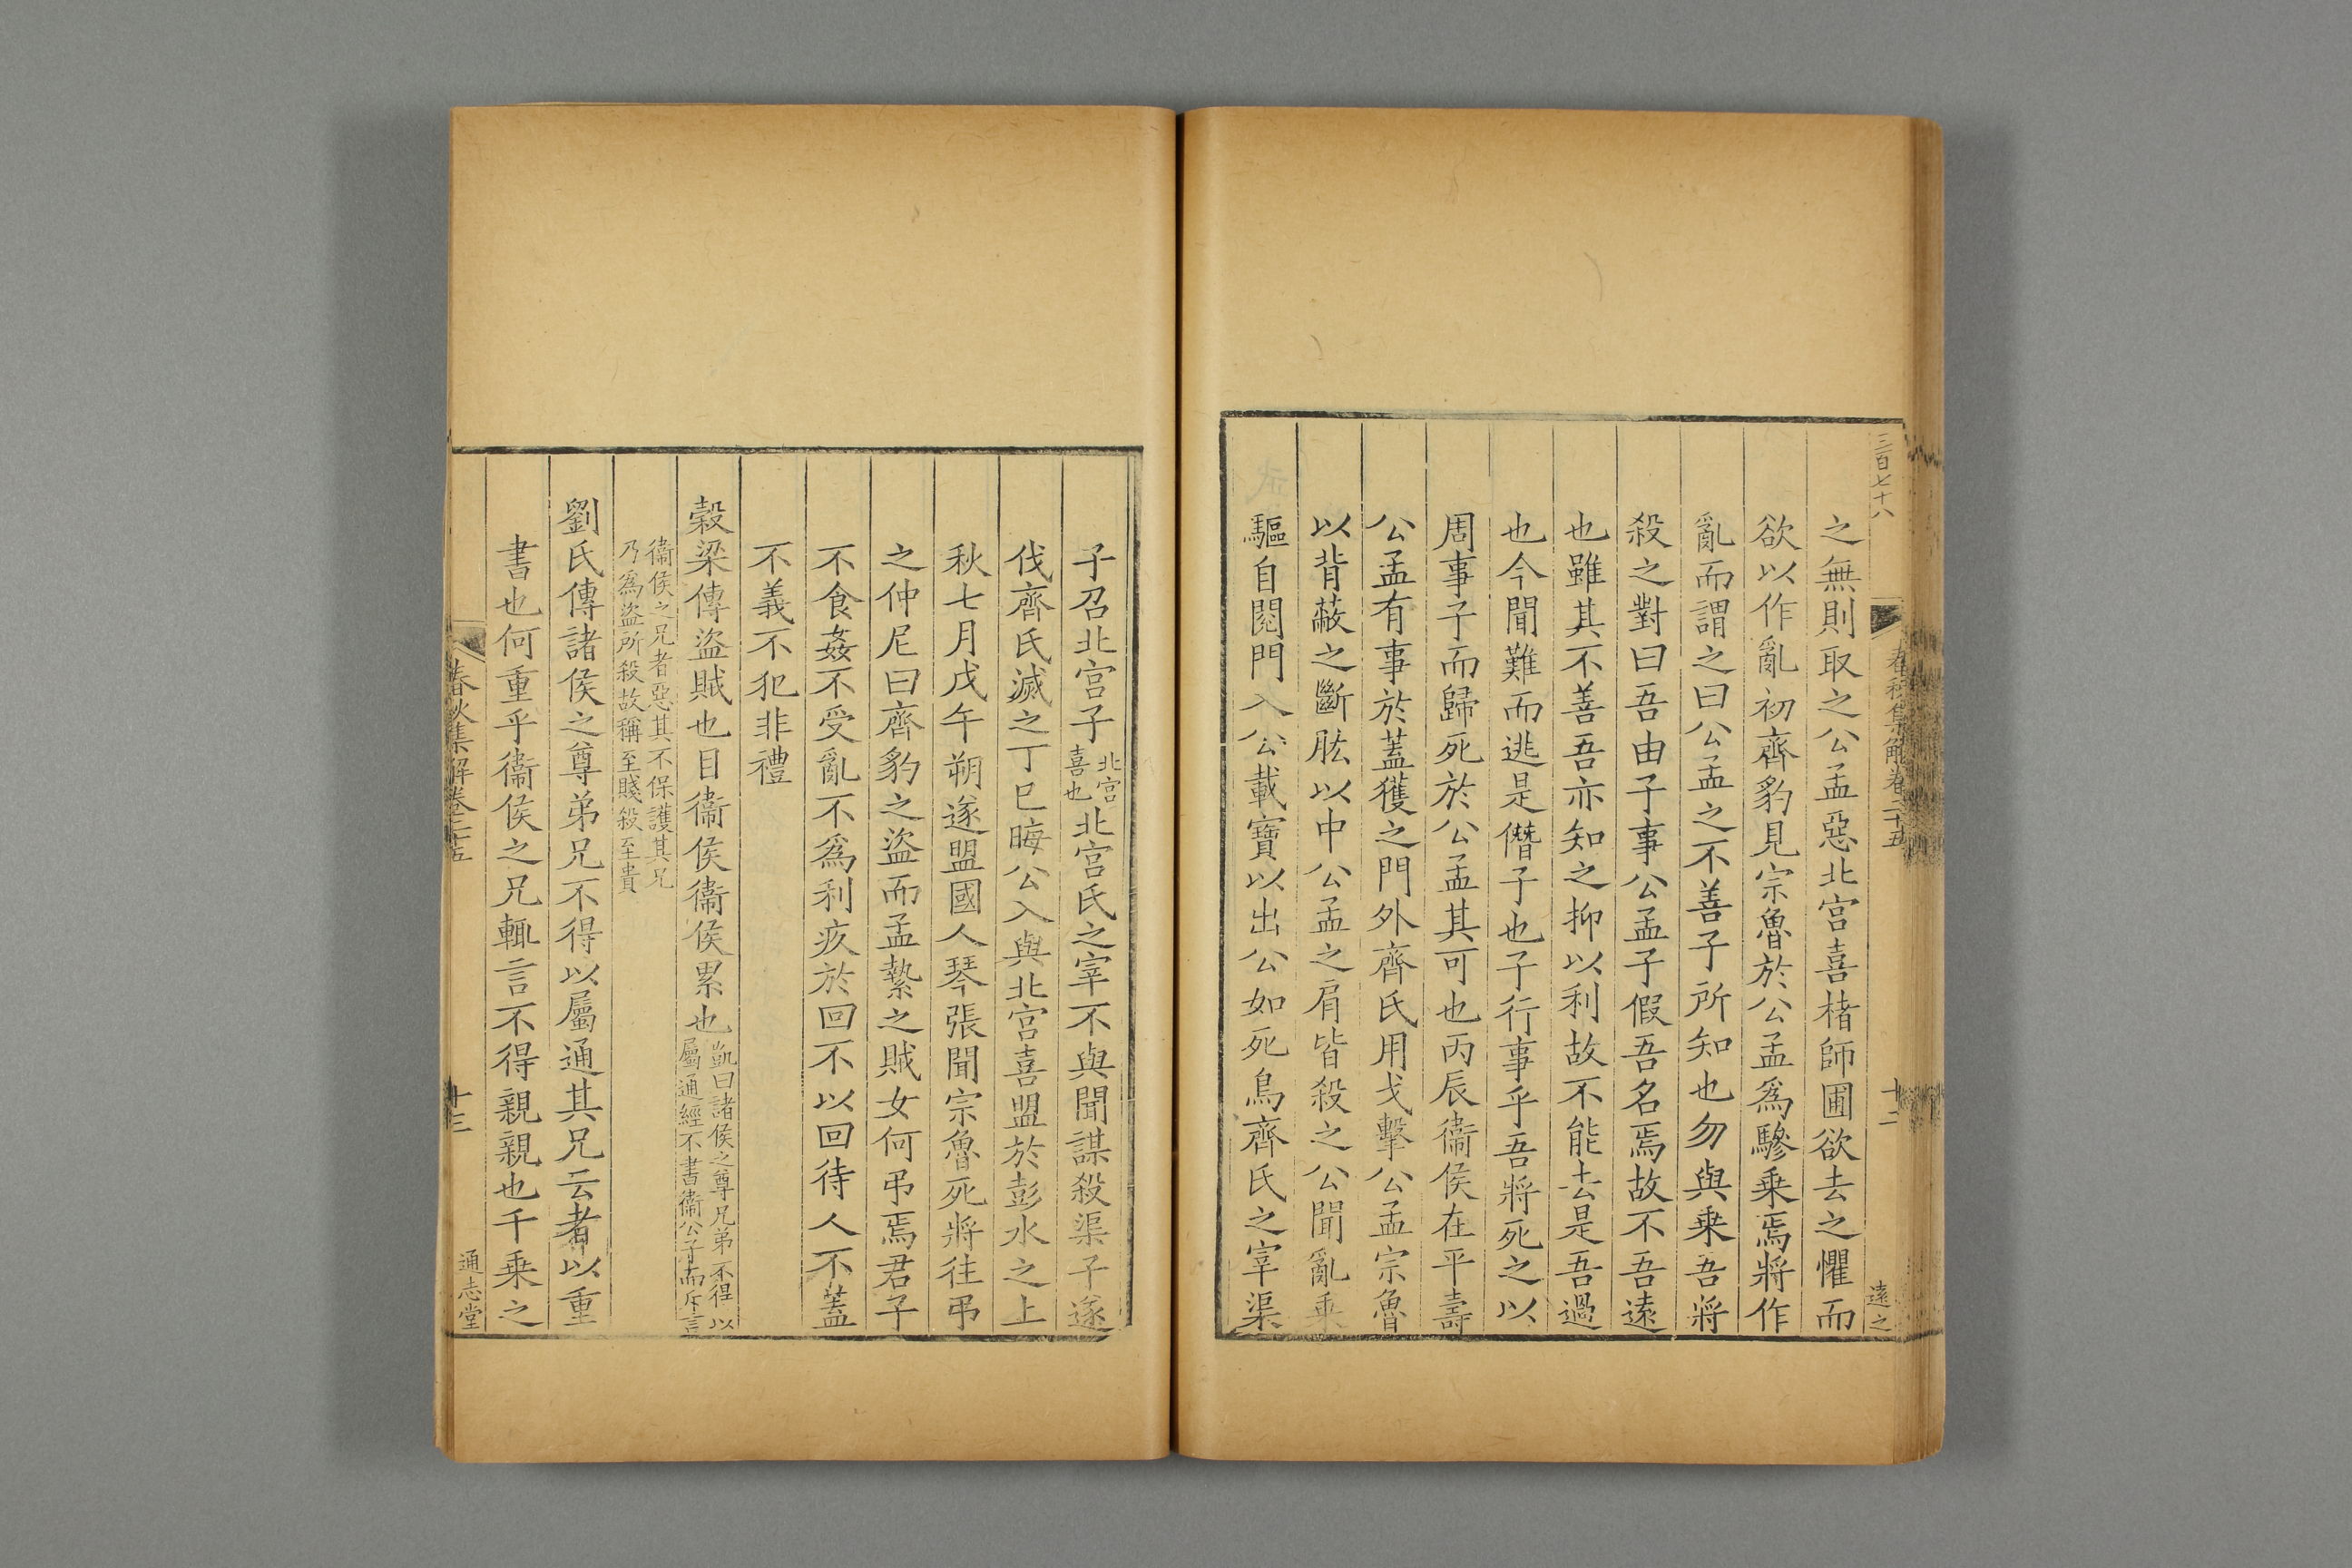 三百七十八
春秋集解卷二十五
十二
遠之
之無則取之公孟惡北宮喜褚師圃欲去之懼而
欲以作亂初齊豹見宗魯於公孟爲驂乘焉將作
亂而謂之曰公孟之不善子所知也勿與乗吾將
殺之對曰吾由子事公孟子假吾名焉故不吾遠
也雖其不善吾亦知之抑以利故不能去是吾過
也今聞難而逃是僭子也子行事乎吾將死之以
周事子而歸死於公孟其可也丙辰衞侯在平壽
公孟有事於蓋獲之門外齊氏用戈擊公孟宗魯
以背蔽之斷肱以中公孟之肩皆殺之公聞亂乗
驅自閱門入公載寶以出公如死鳥齊氏之宰渠
子召北宮子北宮喜也北宮氏之宰不與聞謀殺渠子遂
伐齊氏滅之丁巳晦公入與北宮喜盟於彭水之上
秋七月戊午朔遂盟國人琴張聞宗魯死將往弔
之仲尼曰齊豹之盜而孟縶之賊女何弔焉君子
不食姦不受亂不爲利疚於回不以回待人不蓋
不義不犯非禮
穀梁傳盜賊也目衞侯衞侯累也凱曰諸侯之尊兄弟不得以屬通經不書衞公子而斥言
衞侯之兄者惡其不保護其兄
乃爲盜所殺故稱至賤殺至貴
劉氏傳諸侯之尊弟兄不得以屬通其兄云者以重
書也何重乎衞侯之兄輒言不得親親也千乗之
春秋集解卷二十五
十三
通志堂